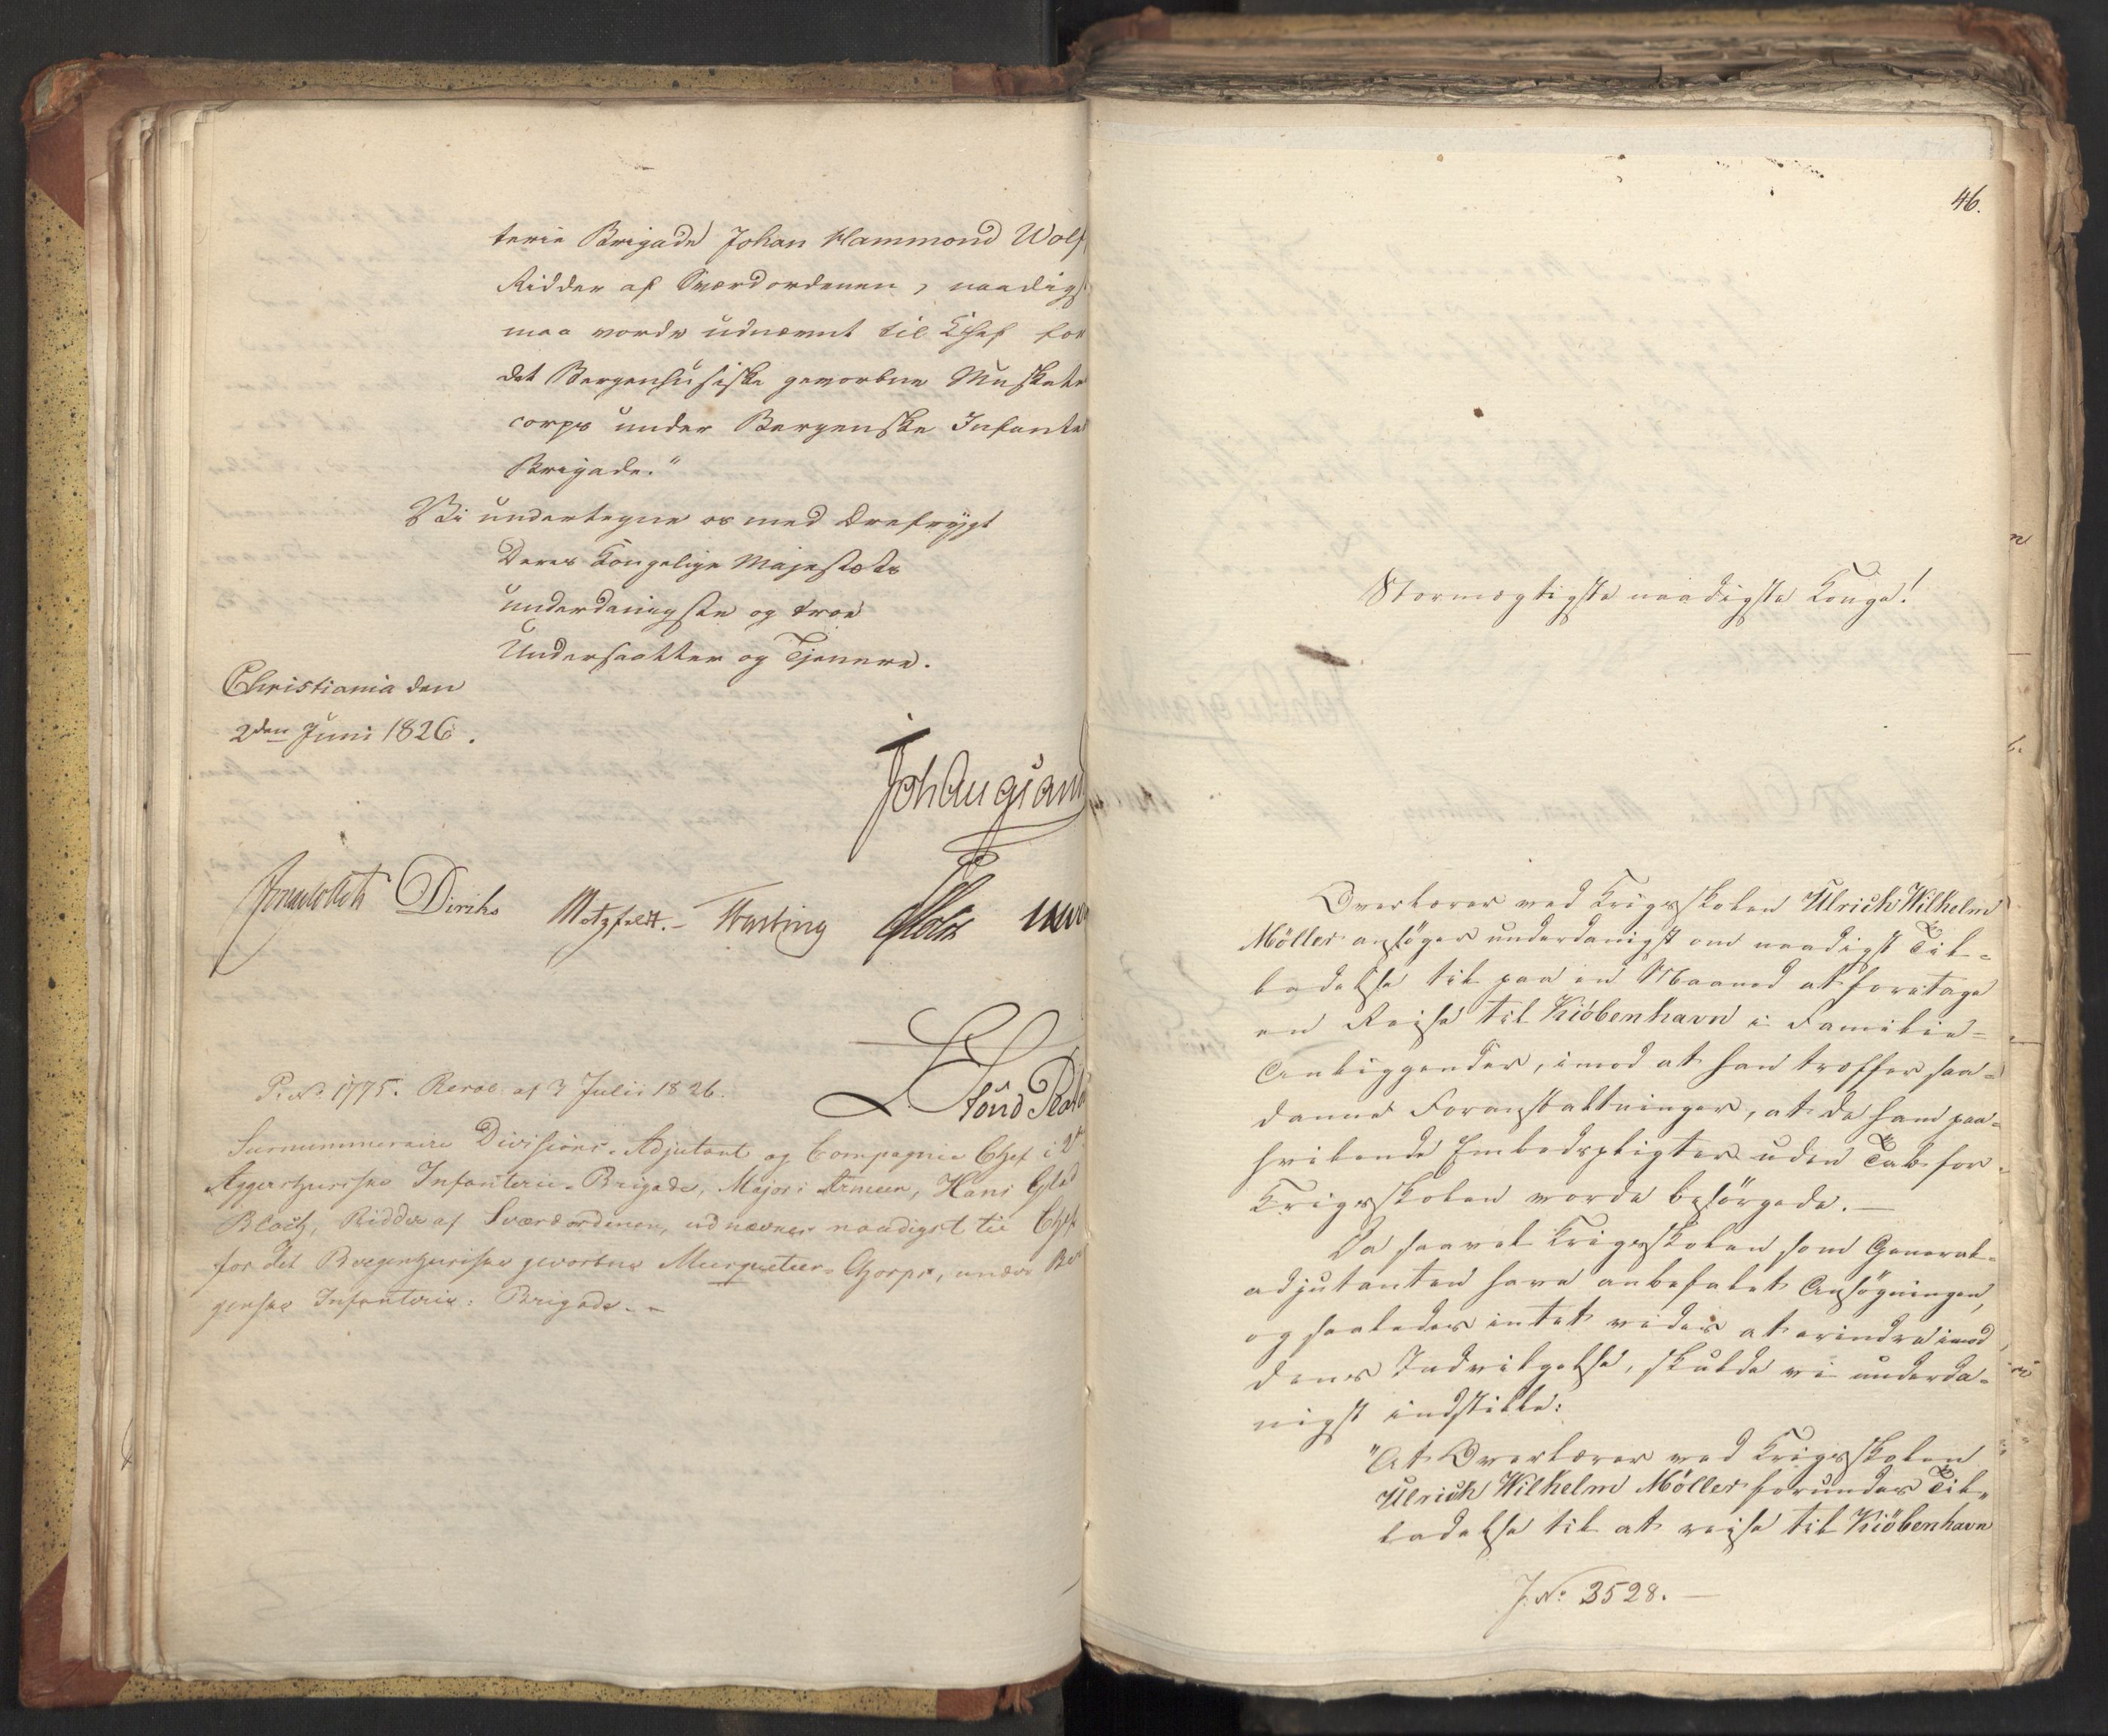 terie Brigade Johan Hammond Wolf
Ridder af Sværdordenen, naadigst
maa vorde udnævnt til Chef for
det Bergenhusiske gevorbne Muskete
corps under Bergenske Infante
Brigade."
Vi undertegne os med Ærefrygt
Deres Kongelige Majestæts
underdanigste og troe
Undersaatter og Tjenere.
Christiania den
2den Juni 1826.
Joh Aug Sand
Diriks Motzfeldt.- Fasting
P. No 1775. Resol. af 3 Julii 1826.
Surnummeraire Divisions-Adjutant og Compagnie Chef i 2den
Aggershusiske Infanterie-Brigade, Major i Armeen, Hans Glad
Bloch, Ridder af Sværdordenen, udnævnes naadigst til Chef
for det Bergenhusiske gevorbne Musqueteer-Chorps, under Ber
genske Infanterie-Brigade.-
46.
Stormægtigste naadigste Konge!
Overlærer ved Krigsskolen Ulrich Wilhelm
Möller ansöger underdanigst om naadigst Til-
ladelse til paa en Maaned at foretage
en Reise til Kiöbenhavn i Familie-
Anliggender, imod at han træffer saa-
danne Foranstaltninger, at de ham paa-
hvilende Embedspligter uden Tab for
Krigsskolen vorde besörgede. —
Da saavel Krigsskolen som General-
adjutanten have anbefalet Ansögningen,
og saaledes intet vides at erindre imod
dens Indvilgelse, skulde vi underda-
nigst indstille:
"At Overlærer ved Krigsskolen
Ulrich Wilhelm Möller forundes Til-
ladelse til at reise til Kiöbenhavn
J. No: 3528. —